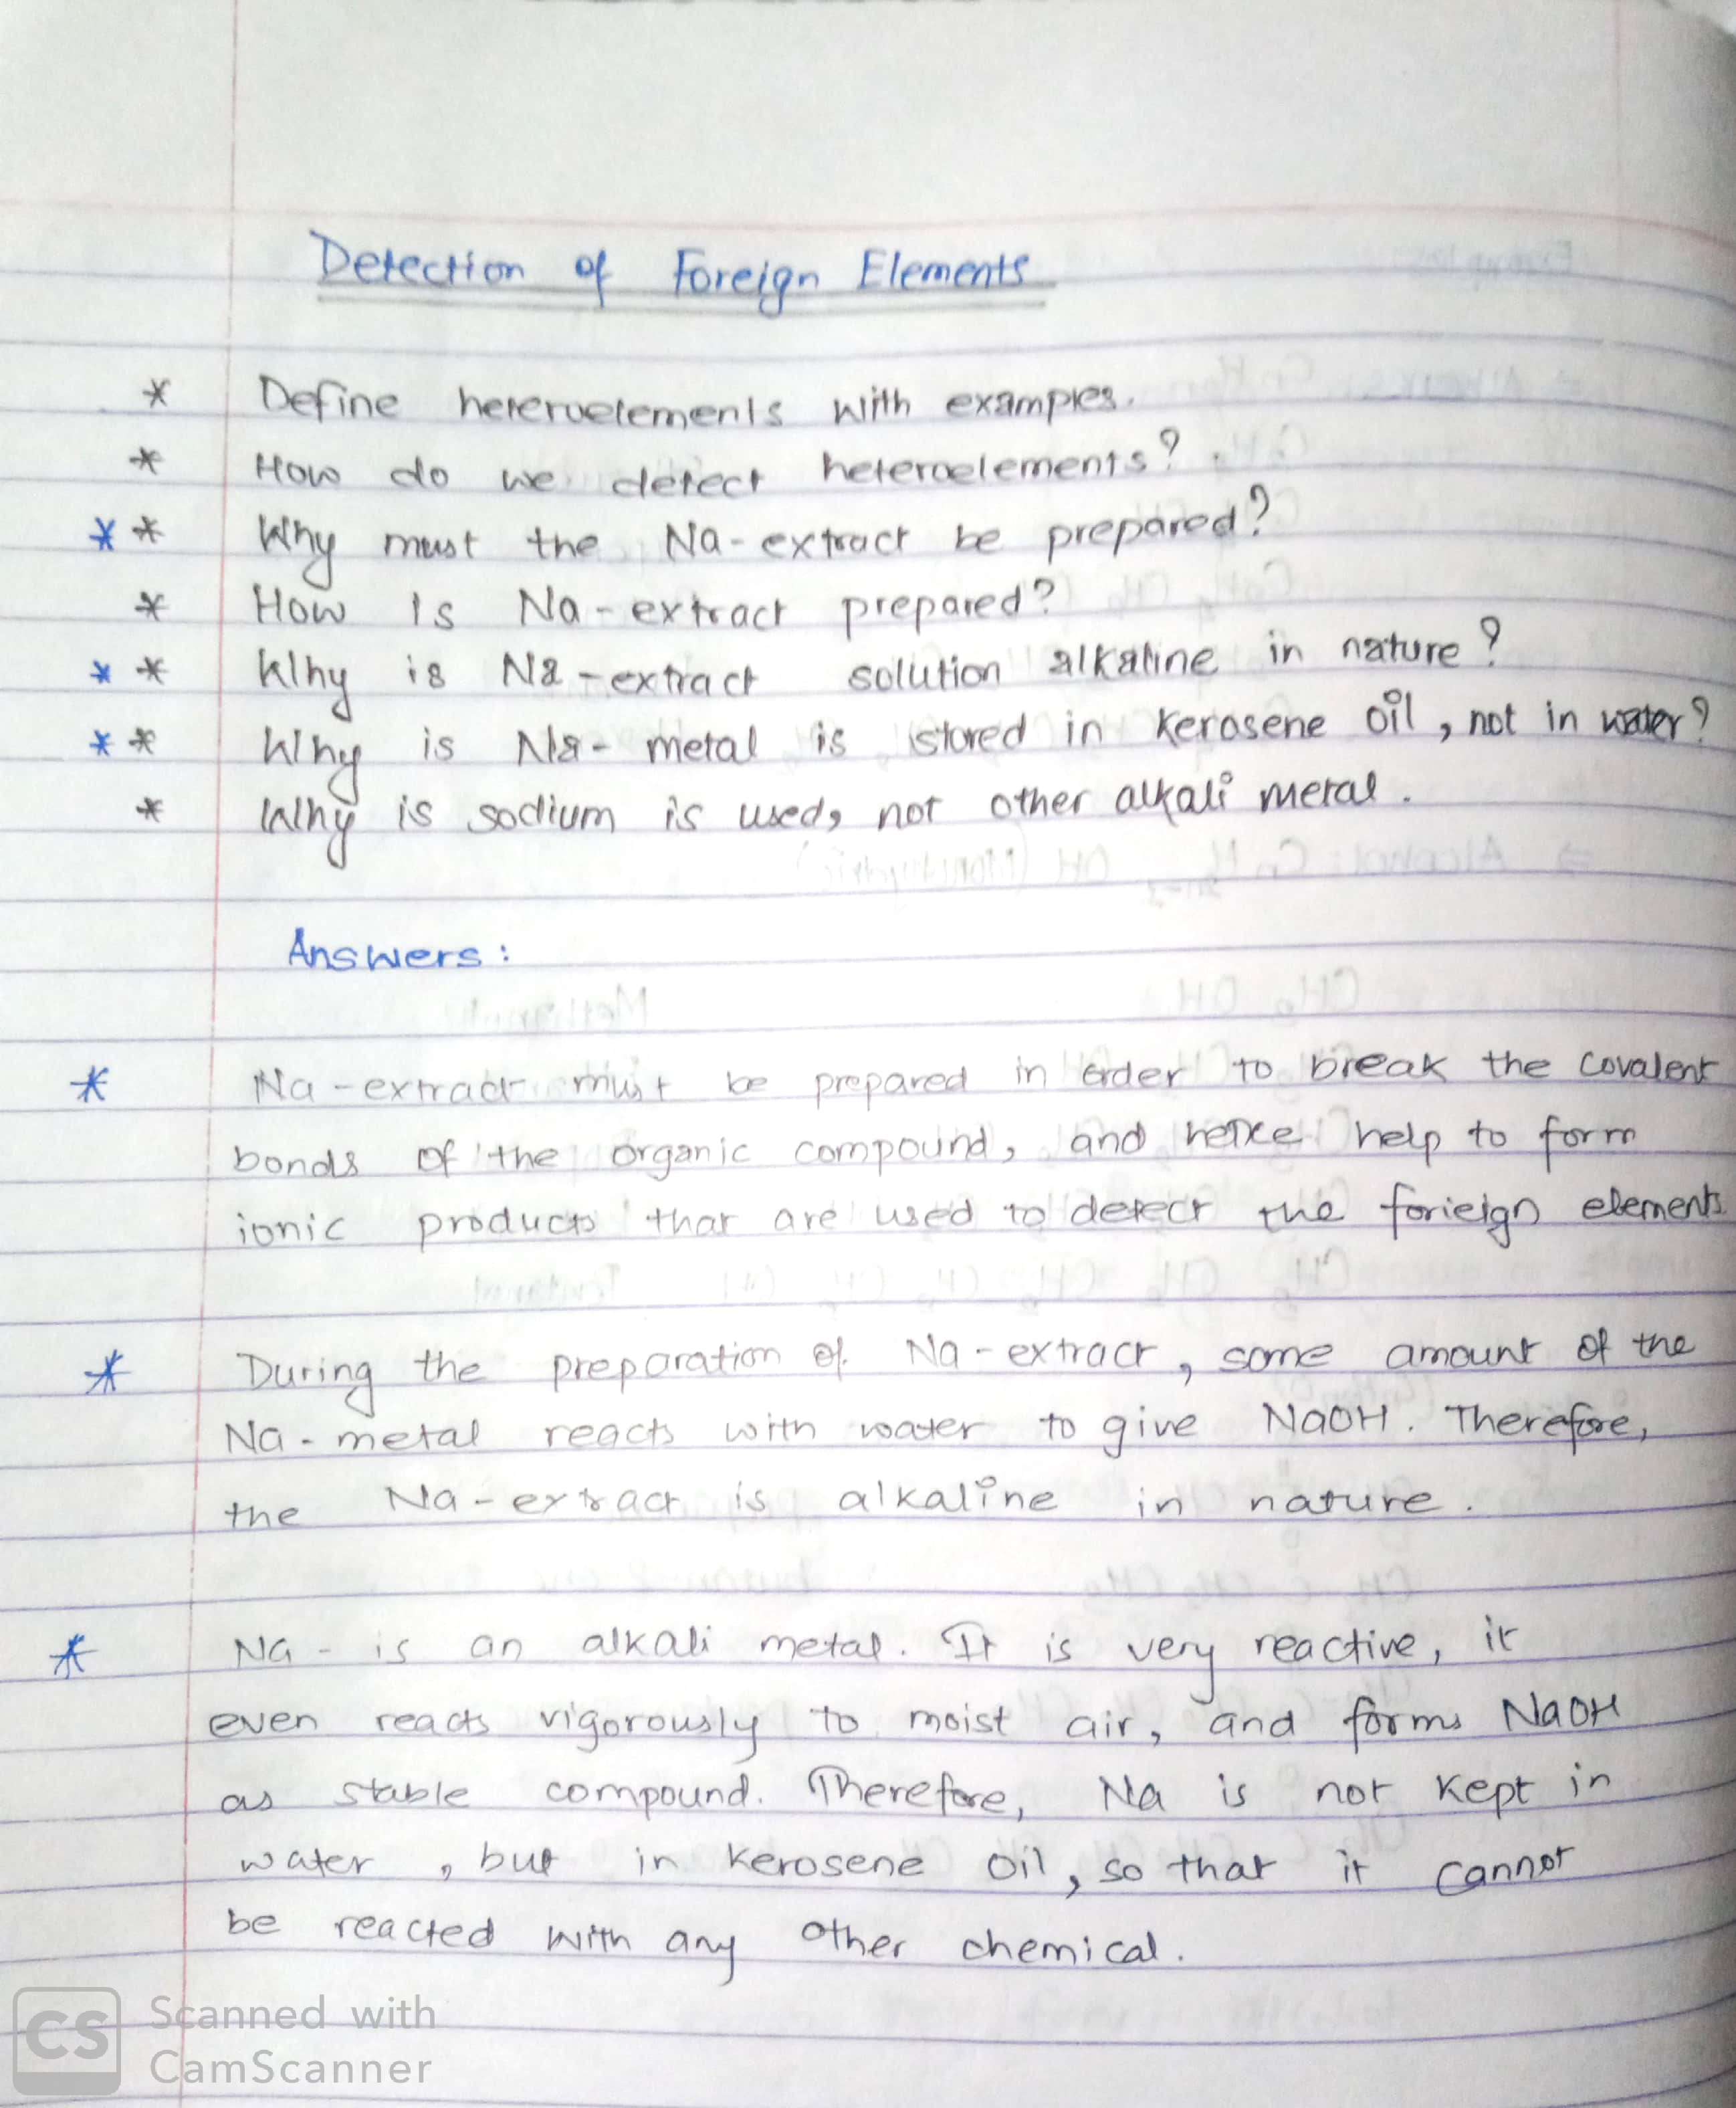 Detection of Foreign Elements
* Define heteroelements with examples.
* How do we detect heteroelements?
* * Why must the Na-extract be prepared?
* How is Na-extract prepared?
* * Why is Na-extract solution alkaline in nature?
* * Why is Na-metal is stored in kerosene oil, not in water?
* Why is sodium is used, not other alkali metal.
Answers:
* Na-extract must be prepared in order to break the covalent
bonds of the organic compound, and hence help to form
ionic products that are used to detect the forieign elements.
* During the preparation of Na-extract, some amount of the
Na-metal reacts with water to give NaOH. Therefore,
the Na-extract is alkaline in nature.
* Na- is an alkali metal. It is very reactive, it
even reacts vigorously to moist air, and forms NaOH
as stable compound. Therefore, Na is not kept in
water, but in kerosene oil, so that it cannot
be reacted with any other chemical.
CS Scanned with
CamScanner